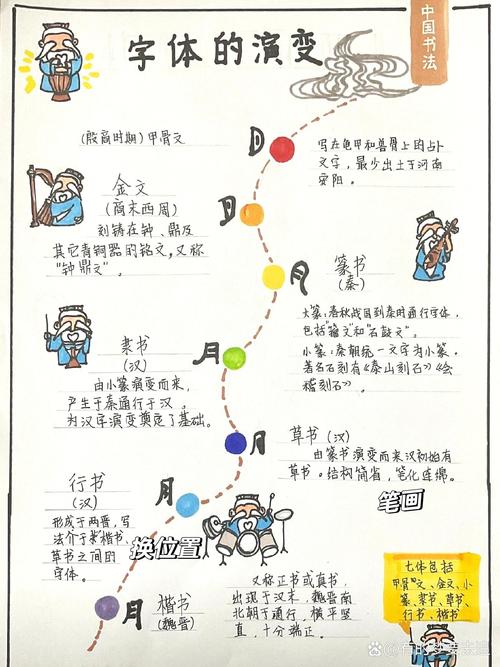 中国书法
字体的演变
(殷商时期) 甲骨文
写在龟甲和兽骨上的占卜
文字，最少出土于河南
安阳。
金文
(商末西周)
刻铸在钟、鼎及
其它青铜器的铭文，又称
“钟鼎文”。
篆书
(秦)
大篆：春秋战国到秦时通行字体，
包括“籀文”和“石鼓文”。
小篆：秦朝统一文字为小篆。
著名石刻有《泰山刻石》《会
稽刻石》。
隶书
(汉)
由小篆演变而来，
产生于秦通行于汉。
为汉字演变奠定了基础。
草书 (汉)
由篆书演变而来汉初始有
草书。结构简省，笔化连绵。
笔画
行书
(汉)
形成于两晋，写
法介于楷书、
草书之间的
字体。
换位置
楷书
(魏晋)
又称正书或真书，
出现于汉末，魏晋南
北朝于通行，横平竖
直，十分端正。
七体包括
甲骨文、金文、小
篆、隶书、草书、
行书、楷书